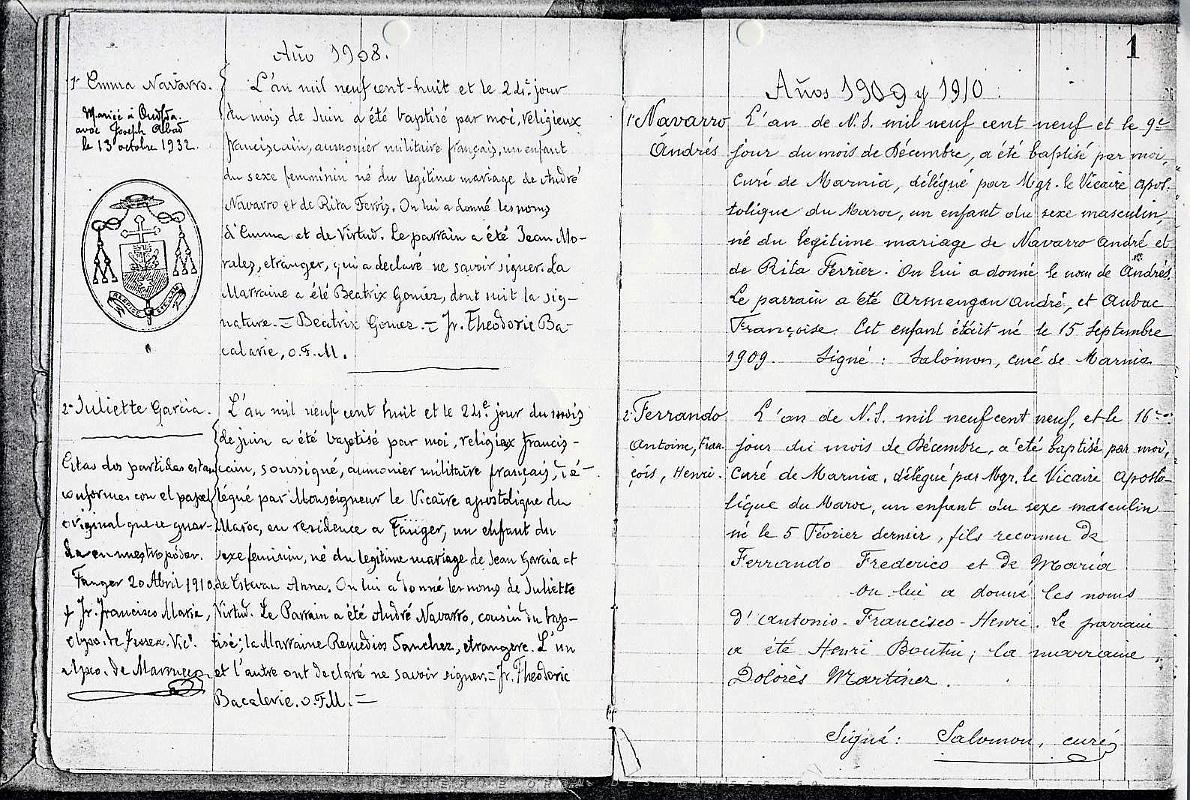 Año 1908.
1º Emma Navarro.
Mariée à Oudjda
avec Joseph Abad
le 13 octobre 1932.
L'an mil neuf cent-huit et le 24e jour
du mois de Juin a été baptisé par moi, religieux
franciscain, aumonier militaire français, un enfant
du sexe femminin né du legitime mariage de André
Navarro et de Rita Ferris. On lui a donné les noms
d'Emma et de Virtud. Le parrain a été Jean Mo-
rales, etranger, qui a declaré ne savoir signer. La
Marraine a été Beatrix Gomez, dont suit la sig-
nature. = Beatrix Gomez. = Fr. Theodoric Ba-
calarie, O.F.M.
2º Juliette Garcia.
Estas dos partidas estan
conformes con el papel
original que se guar-
da en nuestro poder.
Tanger 20 Abril 1910.
+ Fr. Francisco Maria,
Obpo. de Fessea Vicº.
Apco. de Marruecos
L'an mil neuf cent huit et le 24e jour du mois
de juin a été baptisé par moi, religieux francis-
cain, soussigné, aumonier militaire français, dé-
légué par Monseigneur le Vicaire apostolique du
Maroc, en residence a Tanger, un enfant du
sexe feminin, né du legitime mariage de Jean Garcia et
de Estevan Anna. On lui a donné les noms de Juliette
Virtud. Le Parrain a été André Navarro, cousin du bap-
tisé; la Marraine Remedios Sanchez, etrangere. L'un
et l'autre ont declaré ne savoir signer. = Fr. Theodoric
Bacalerie. O.F.M. =
1
Años 1909 y 1910:
1º Navarro
Andrés
L'an de N.S. mil neuf cent neuf et le 9e
jour du mois de Décembre, a été baptisé par moi,
Curé de Marnia, délégué par Mgr. le Vicaire Apos-
tolique du Maroc, un enfant du sexe masculin,
né du legitime mariage de Navarro André et
de Rita Ferrier. On lui a donné le nom de Andrés.
Le parrain a été Armengon André, et Aubac
Françoise. Cet enfant était né le 15 Septembre
1909. Signé: Salomon, curé de Marnia
2º Ferrando
Antoine, Fran-
çois, Henri.
L'an de N.S. mil neuf cent neuf, et le 16
jour du mois de Décembre, a été baptisé par moi,
Curé de Marnia, délégué par Mgr. le Vicaire Aposto-
lique du Maroc, un enfant du sexe masculin
né le 5 Février dernier, fils reconnu de
Ferrando Frederico et de Maria
On lui a donné les noms
d'Antonio-Francisco-Henri. Le parrain
a été Henri Boutin; la marraine
Dolorès Martinez.
Signé: Salomon, curé